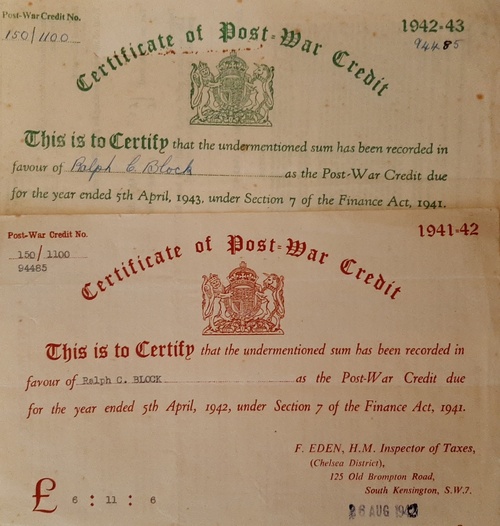 Post-War Credit No.
1942-43
150/1100
94485
Certificate of Post-War Credit
This is to Certify that the undermentioned sum has been recorded in
favour of Ralph C. Block as the Post-War Credit due
for the year ended 5th April, 1943, under Section 7 of the Finance Act, 1941.
Post-War Credit No.
1941-42
150/1100
94485
Certificate of Post-War Credit
This is to Certify that the undermentioned sum has been recorded in
favour of Ralph C. BLOCK as the Post-War Credit due
for the year ended 5th April, 1942, under Section 7 of the Finance Act, 1941.
F. EDEN, H.M. Inspector of Taxes,
(Chelsea District),
125 Old Brompton Road,
South Kensington, S.W.7.
£ 6 : 11 : 6
AUG